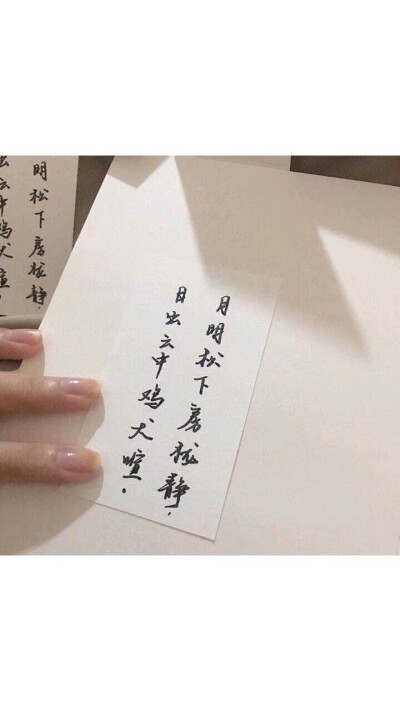 月明松下房栊静，
日出云中鸡犬喧。
明松下房栊静，
出云中鸡犬喧